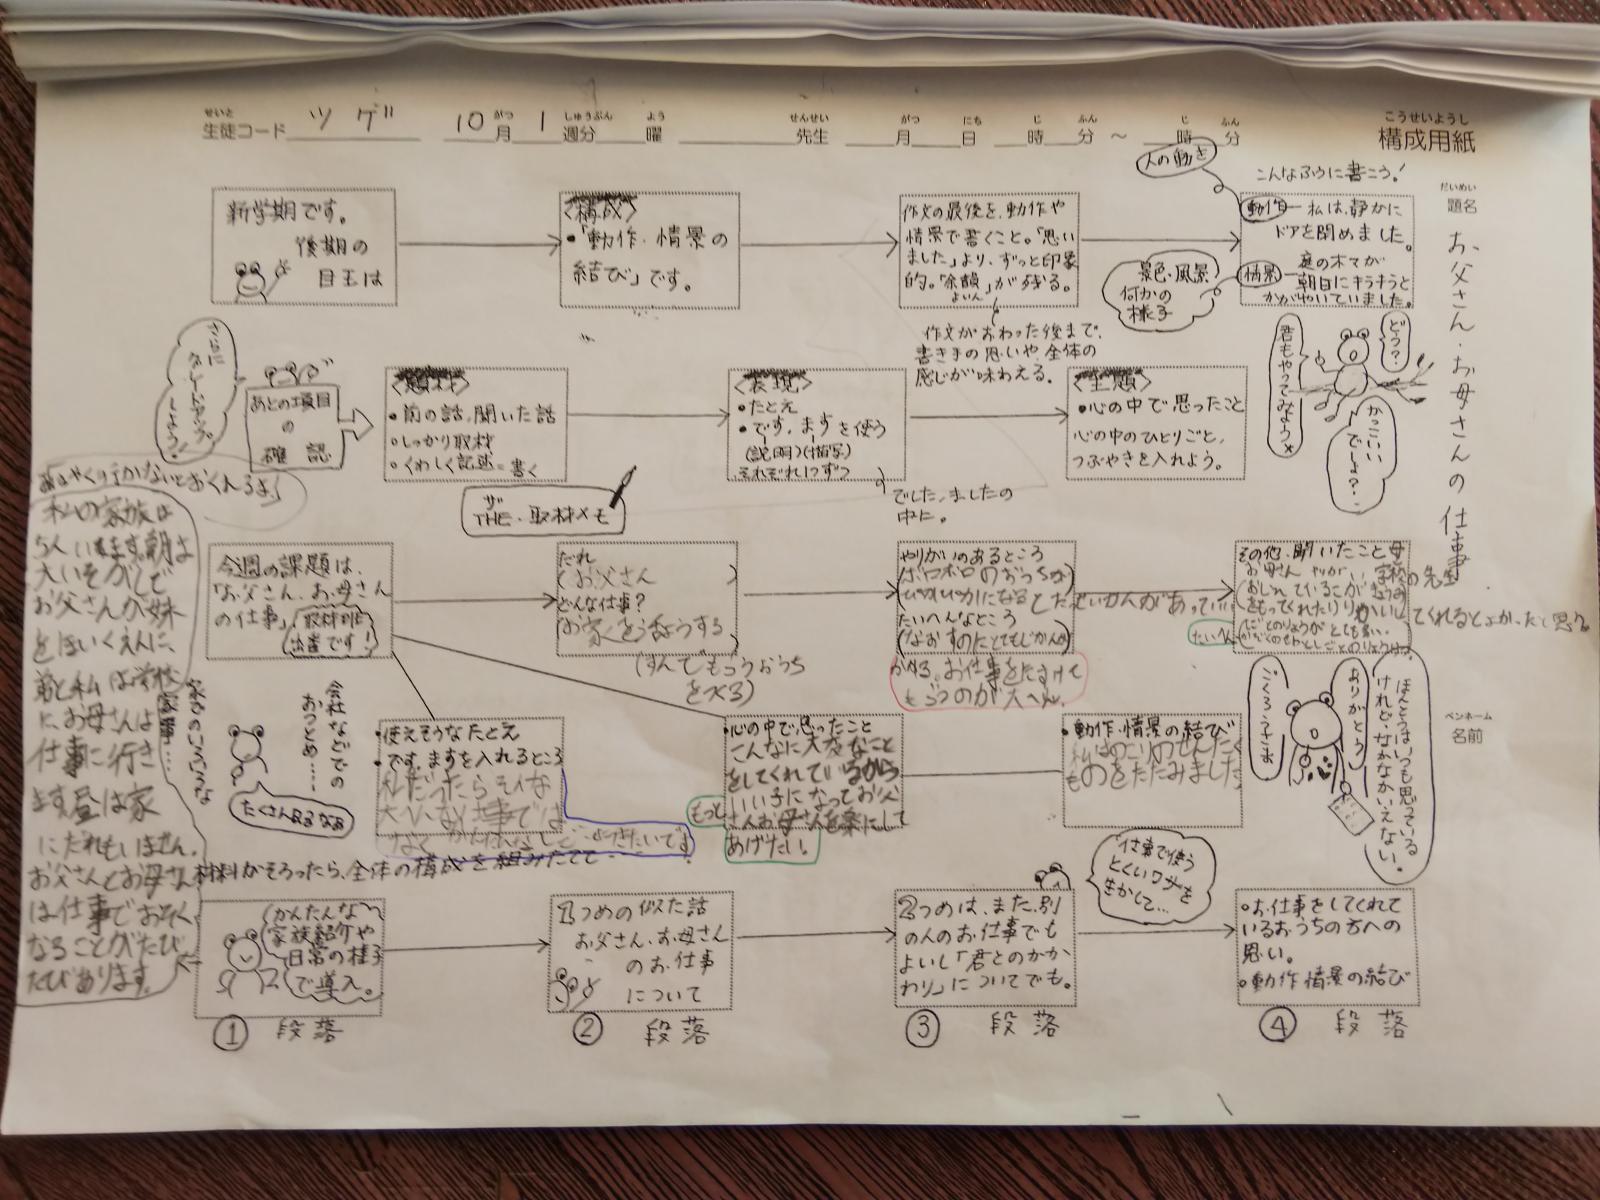 せいと がつ しゅうぶん よう せんせい がつ にち じ ふん じ ふん こうせいようし
生徒コード ツゲ 10月 1週分 曜 先生 月 日 時 分 ～ 時 分 構成用紙
だいめい
題名
お父さん・お母さんの仕事
ペンネーム
名前
新学期です。
後期の
目玉は
〈構成〉
・「動作・情景の
結び」です。
作文の最後を、動作や
情景で書くこと。「思い
ました」より、ずっと印象
的。「余韻」が残る。
よいん
作文がおわった後まで、
書き手の思いや、全体の
感じが味わえる。
人の動き
こんなふうに書こう!
動作―私は、静かに
ドアを閉めました。
情景―庭の木々が
朝日にキラキラと
かがやいていました。
景色・風景
何かの
様子
さらに
グレードアップ
しよう!
あとの項目
の
確認
〈題材〉
・前の話、聞いた話
・しっかり取材
・くわしく記述=書く
〈表現〉
・たとえ
・です、ますを使う
(説明)(描写)
それぞれ1つずつ
でした、ましたの
中に。
〈主題〉
・心の中で思ったこと
心の中のひとりごと、
つぶやきを入れよう。
君もやってみよう
どう?
かっこいい
でしょ?
ザ
THE・取材メモ
今週の課題は、
「お父さん、お母さん
の仕事」
取材班
出番です!
だれ
(お父さん)
どんな仕事?
やりがいのあるところ
(ボロボロのおうちが
ぴかぴかになると
たいへんなところ
かかる。お仕事をたすけて
もらうのが大へん。
その他、聞いたこと
たいへん
会社などでの
おつとめ……
家でのいろいろな
家事……
たくさんあるなぁ
・使えそうなたとえ
・です、ますを入れるところ
心の中で思ったこと
こんなに大変なこと
をしてくれているから
もっと
いい子になってお父
さんお母さんを楽にして
あげたい。
・動作・情景の結び
私はのこりのせんたく
ものをたたみました
ごくろうさま
ありがとう
ほんとうはいつも思っている
けれど、なかなかいえない。
材料がそろったら、全体の構成を組みたてて…
かんたんな
家族紹介や
日常の様子
で導入。
① 段落
1つめの似た話
お父さん、お母さん
のお仕事
について
② 段落
2つめは、また別
の人のお仕事でも
よいし「君とのかか
わり」についてでも。
③ 段落
仕事で使う
とくいワザを
生かして…
・お仕事をしてくれて
いるおうちの方への
思い。
・動作情景の結び
④ 段落
私の家族は
5人います。朝は
大いそがしで
お父さんが妹
をほいくえんに、
弟と私は学校
に、お母さんは
仕事に行き
ます。昼は家
にだれもいません。
お父さんとお母さん
は仕事でおそく
なることがたび
たびあります。